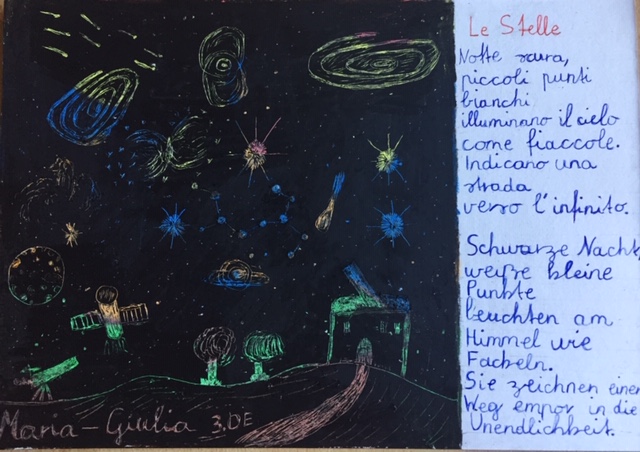 Maria-Giulia 3.DE
Le Stelle
Notte scura,
piccoli punti
bianchi
illuminano il cielo
come fiaccole.
Indicano una
strada
verso l'infinito.
Schwarze Nacht,
weiße kleine
Punkte
leuchten am
Himmel wie
Fackeln.
Sie zeichnen einen
Weg empor in die
Unendlichkeit.